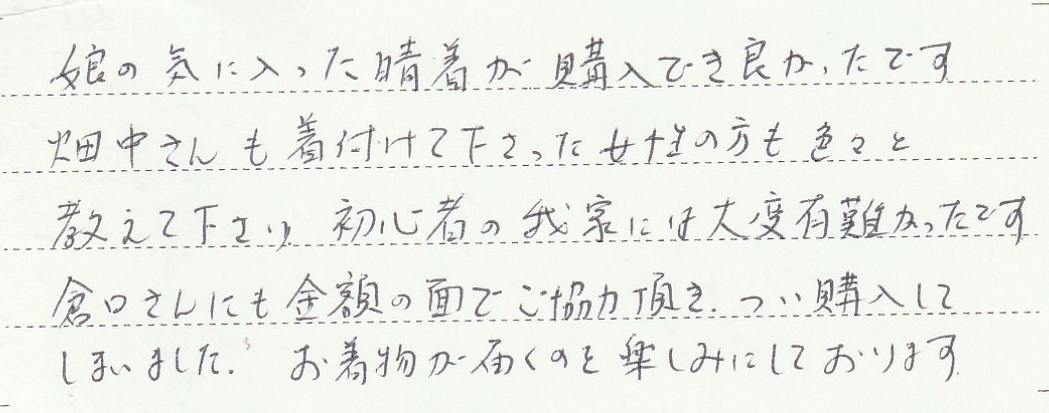 娘の気に入った晴着が購入でき良かったです
畑中さんも着付けて下さった女性の方も色々と
教えて下さり 初心者の我家には大変有難かったです
倉口さんにも金額の面でご協力頂き、つい購入して
しまいました. お着物が届くのを楽しみにしております